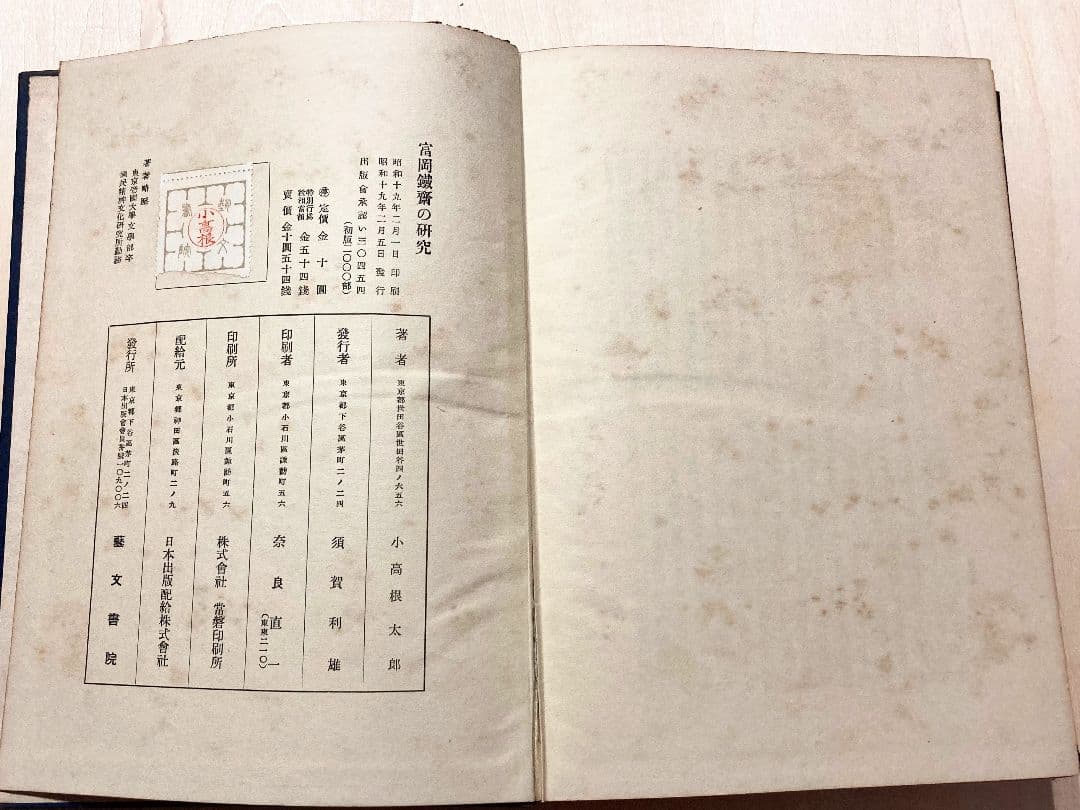 富岡鐵齋の研究
昭和十九年二月一日印刷
昭和十九年二月五日發行
出版會承認い三〇四五四
(初版二〇〇〇部)
定價金十圓
特別行爲税相當額 金五十四錢
賣價金十圓五十四錢
小高根
著者略歴
東京帝國大學文學部卒
國民精神文化研究所勤務
著者 東京都世田谷區世田谷四ノ六五六 小高根太郎
發行者 東京都下谷區茅町二ノ二四 須賀利雄
印刷者 東京都小石川區諏訪町五六 奈良直一
(東東二一〇)
印刷所 東京都小石川區諏訪町五六 株式會社 常磐印刷所
配給元 東京都神田區淡路町二ノ九 日本出版配給株式會社
發行所 東京都下谷區茅町二ノ二四
日本出版會會員番號一〇九〇〇六
藝文書院